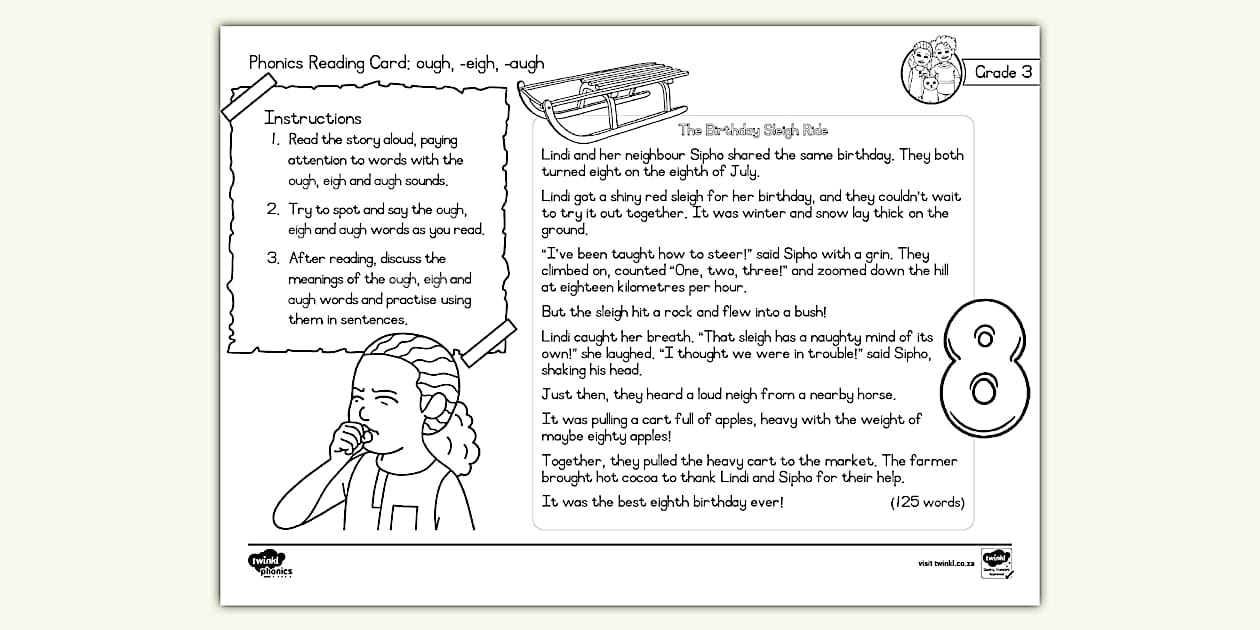 Phonics Reading Card: ough, -eigh, -augh
Grade 3
Instructions
1. Read the story aloud, paying
attention to words with the
ough, eigh and augh sounds.
2. Try to spot and say the ough,
eigh and augh words as you read.
3. After reading, discuss the
meanings of the ough, eigh and
augh words and practise using
them in sentences.
The Birthday Sleigh Ride
Lindi and her neighbour Sipho shared the same birthday. They both
turned eight on the eighth of July.
Lindi got a shiny red sleigh for her birthday, and they couldn't wait
to try it out together. It was winter and snow lay thick on the
ground.
“I've been taught how to steer!” said Sipho with a grin. They
climbed on, counted “One, two, three!” and zoomed down the hill
at eighteen kilometres per hour.
But the sleigh hit a rock and flew into a bush!
Lindi caught her breath. “That sleigh has a naughty mind of its
own!” she laughed. “I thought we were in trouble!” said Sipho,
shaking his head.
Just then, they heard a loud neigh from a nearby horse.
It was pulling a cart full of apples, heavy with the weight of
maybe eighty apples!
Together, they pulled the heavy cart to the market. The farmer
brought hot cocoa to thank Lindi and Sipho for their help.
It was the best eighth birthday ever! (125 words)
8
twinkl
phonics
visit twinkl.co.za
twinkl
Quality Standard
Approved